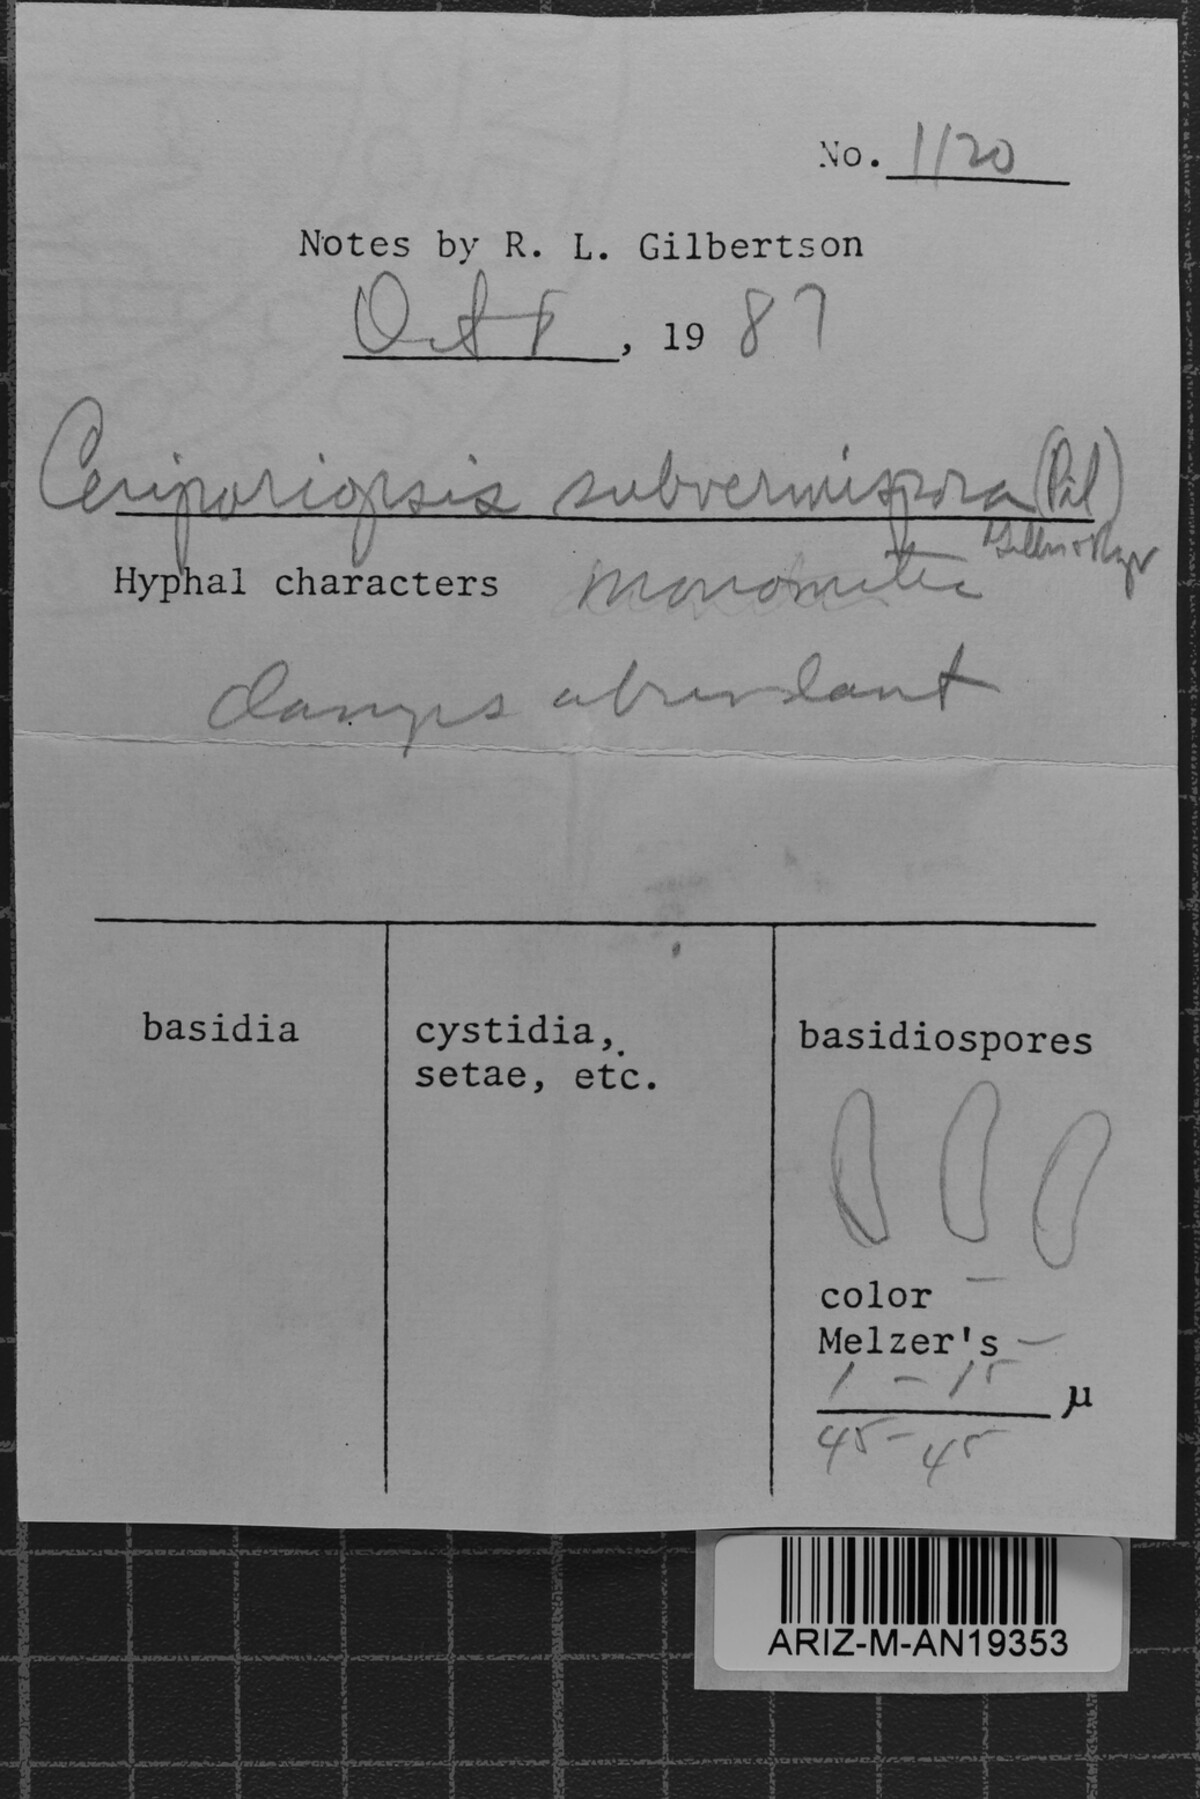 No. 1120
Notes by R. L. Gilbertson
Oct 8, 19 87
Ceriporiopsis subvermispora (Pil)
Gilbn & Ryv
Hyphal characters monomitic
clamps abundant
basidia
cystidia,
setae, etc.
basidiospores
color –
Melzer's –
1 – 15 µ
45 – 45
ARIZ-M-AN19353